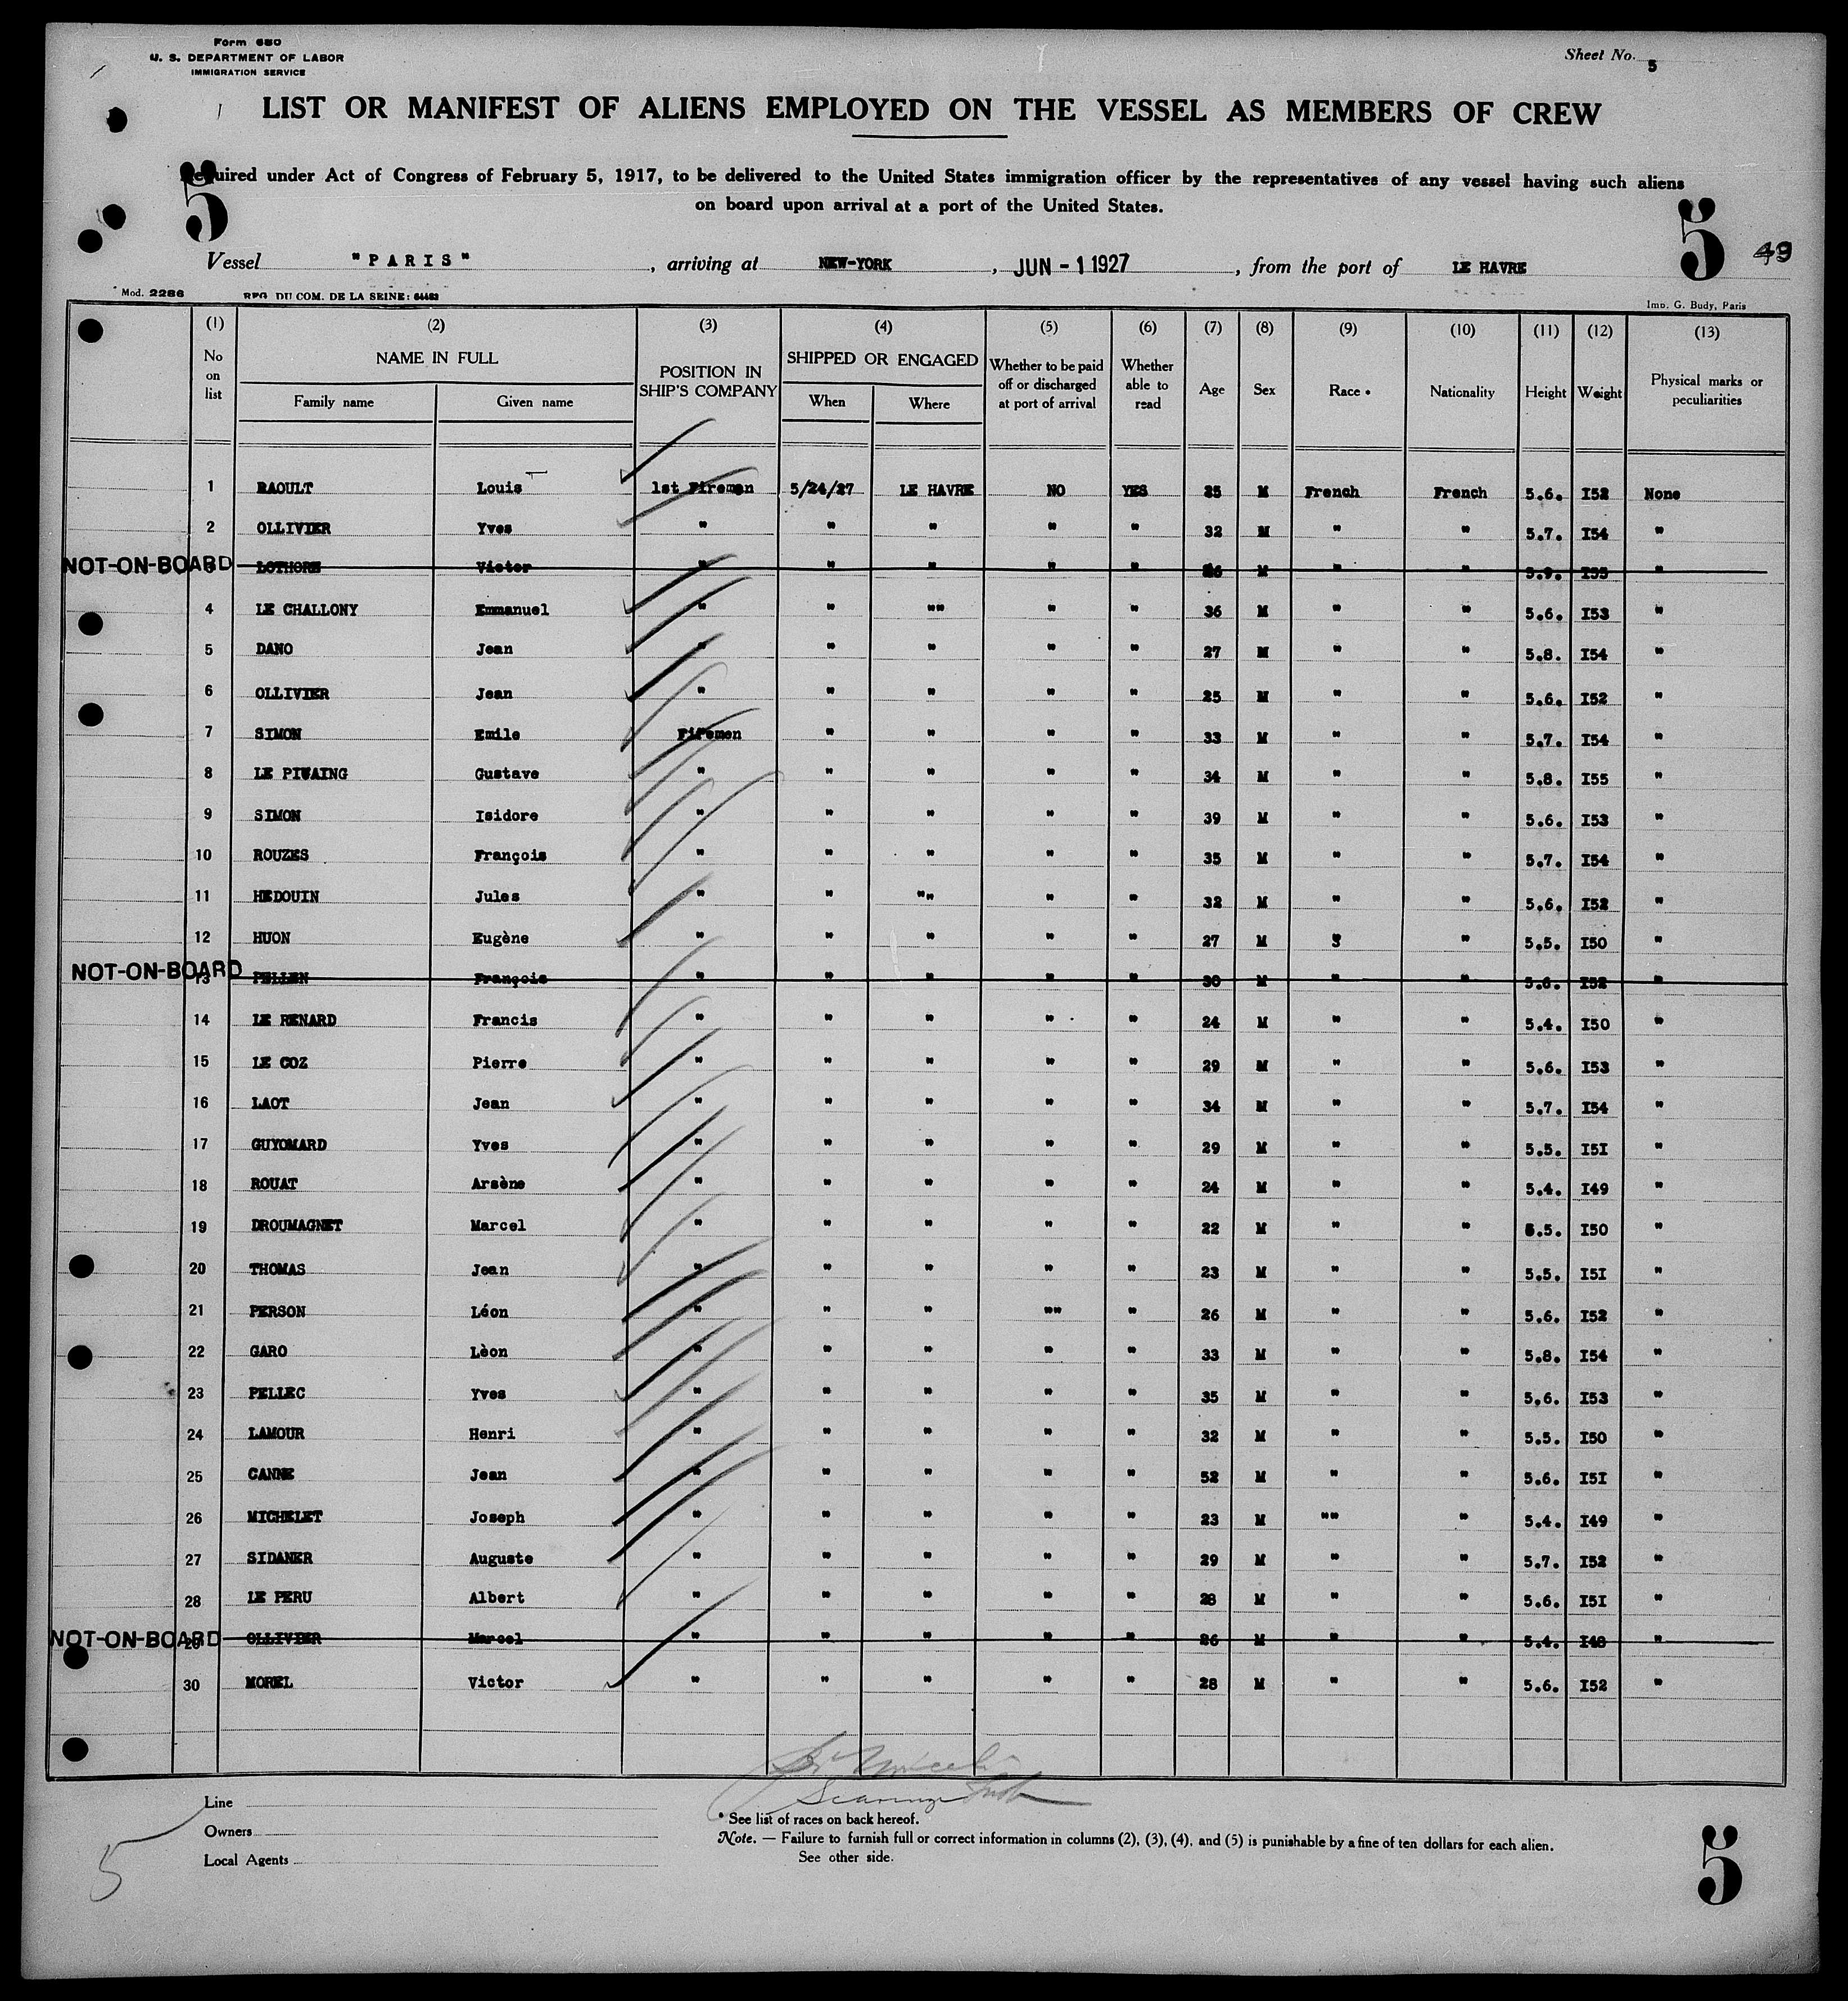 Form 680
U. S. DEPARTMENT OF LABOR
IMMIGRATION SERVICE
Sheet No. 5
LIST OR MANIFEST OF ALIENS EMPLOYED ON THE VESSEL AS MEMBERS OF CREW
Required under Act of Congress of February 5, 1917, to be delivered to the United States immigration officer by the representatives of any vessel having such aliens
on board upon arrival at a port of the United States.
5 5 49
Vessel "PARIS", arriving at NEW-YORK, JUN - 1 1927, from the port of LE HAVRE
Mod. 2286 REG. DU COM. DE LA SEINE: 64483 Imp. G. Budy, Paris
(1) (2) (3) (4) (5) (6) (7) (8) (9) (10) (11) (12) (13)
No on list NAME IN FULL POSITION IN SHIP'S COMPANY SHIPPED OR ENGAGED Whether to be paid off or discharged at port of arrival Whether able to read Age Sex Race * Nationality Height Weight Physical marks or peculiarities
Family name Given name When Where
1 RAOULT Louis 1st Firemen 5/24/27 LE HAVRE NO YES 25 M French French 5.6. I52 None
2 OLLIVIER Yves " " " " " 32 M " " 5.7. I54 "
NOT-ON-BOARD 3 LOTHORE Victor " " " " " 26 M " " 5.9. I55 "
4 LE CHALLONY Emmanuel " " "" " " 36 M " " 5.6. I53 "
5 DANO Jean " " " " " 27 M " " 5.8. I54 "
6 OLLIVIER Jean " " " " " 25 M " " 5.6. I52 "
7 SIMON Emile Firemen " " " " 33 M " " 5.7. I54 "
8 LE PIVAING Gustave " " " " " 34 M " " 5.8. I55 "
9 SIMON Isidore " " " " " 39 M " " 5.6. I53 "
10 ROUZES François " " " " " 35 M " " 5.7. I54 "
11 HEDOUIN Jules " " "" " " 32 M " " 5.6. I52 "
12 HUON Eugène " " " " " 27 M " " 5.5. I50 "
NOT-ON-BOARD 13 PELLEN François " " " " " 30 M " " 5.6. I52 "
14 LE RENARD Francis " " " " " 24 M " " 5.4. I50 "
15 LE COZ Pierre " " " " " 29 M " " 5.6. I53 "
16 LAOT Jean " " " " " 34 M " " 5.7. I54 "
17 GUYOMARD Yves " " " " " 29 M " " 5.5. I5I "
18 ROUAT Arsène " " " " " 24 M " " 5.4. I49 "
19 DROUMAGNET Marcel " " " " " 22 M " " 5.5. I50 "
20 THOMAS Jean " " " " " 23 M " " 5.5. I5I "
21 PERSON Léon " " " "" " 26 M " " 5.6. I52 "
22 GARO Lèon " " " " " 33 M " " 5.8. I54 "
23 PELLEC Yves " " " " " 35 M " " 5.6. I53 "
24 LAMOUR Henri " " " " " 32 M " " 5.5. I50 "
25 CANNE Jean " " " " " 52 M " " 5.6. I5I "
26 MICHELET Joseph " " " " " 23 M "" " 5.4. I49 "
27 SIDANER Auguste " " " " " 29 M " " 5.7. I52 "
28 LE PERU Albert " " " " " 28 M " " 5.6. I5I "
NOT-ON-BOARD 29 OLLIVIER Marcel " " " " " 26 M " " 5.4. I48 "
30 MOREL Victor " " " " " 28 M " " 5.6. I52 "
Line
Owners
Local Agents
* See list of races on back hereof.
Note. — Failure to furnish full or correct information in columns (2), (3), (4), and (5) is punishable by a fine of ten dollars for each alien.
See other side.
5 5